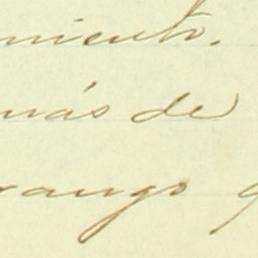 miento.
más de
rango q